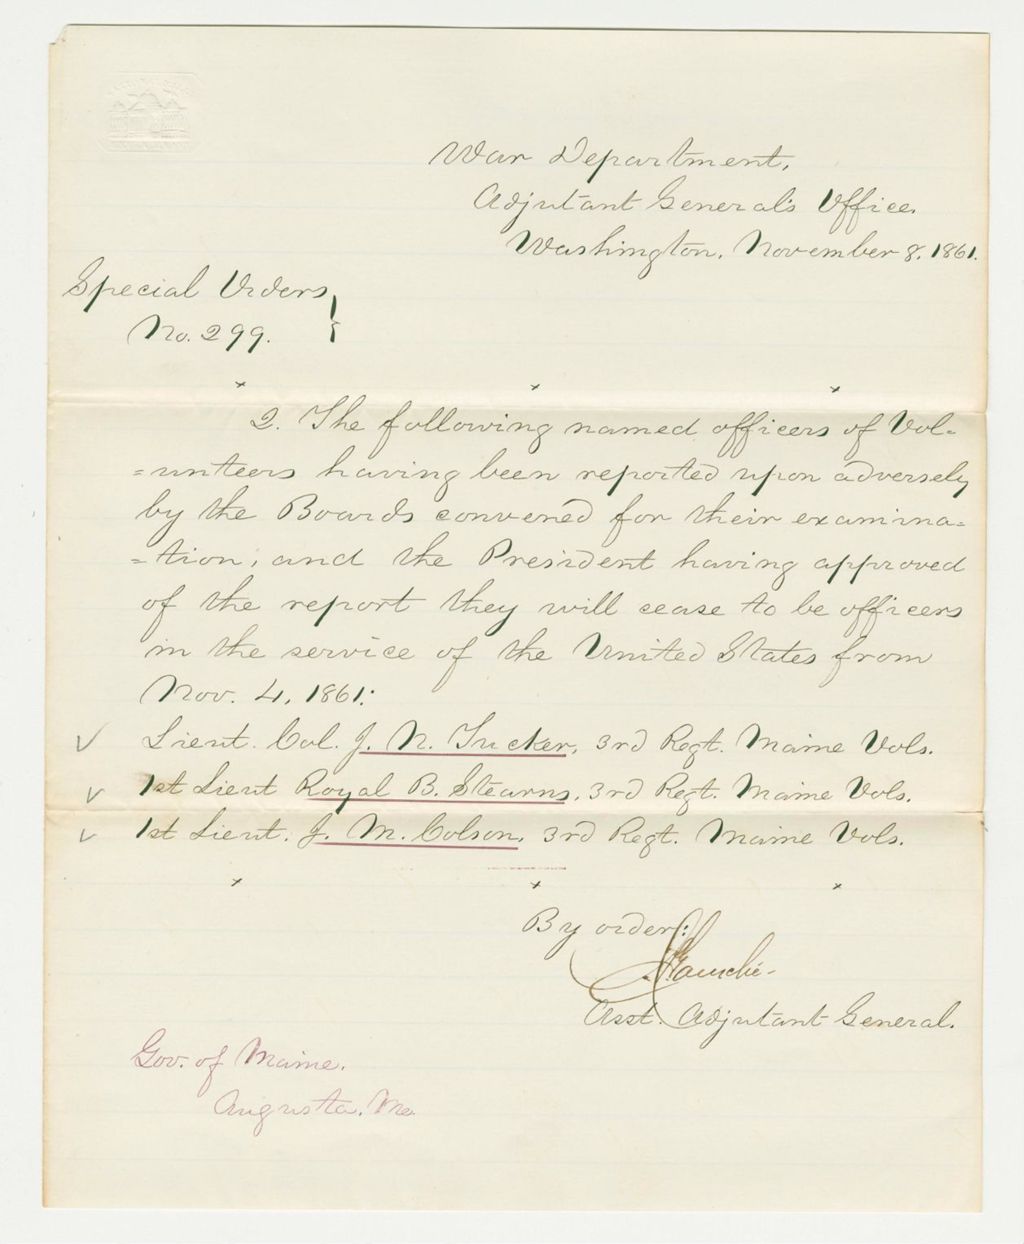 War Department,
Adjutant General's Office,
Washington, November 8, 1861.
Special Orders
No. 299.
x x x
2. The following named officers of Vol=
=unteers having been reported upon adversely
by the Boards convened for their examina=
=tion, and the President having approved
of the report they will cease to be officers
in the service of the United States from
Nov. 4, 1861:
✓ Lieut. Col. J. N. Tucker, 3rd Regt. Maine Vols.
✓ 1st Lieut Royal B. Stearns, 3rd Regt. Maine Vols.
✓ 1st Lieut. J. M. Colson, 3rd Regt. Maine Vols.
x x x
By order:
Asst. Adjutant General.
Gov. of Maine.
Augusta, Me.